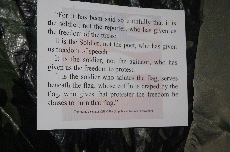 "For it has been said so truthfully that it is
the soldier, not the reporter, who has given us
the freedom of the press.
It is the Soldier, not the poet, who has given
us freedom of speech.
It is the soldier, not the agitator, who has
given us the freedom to protest.
It is the soldier who salutes the flag, serves
beneath the flag, whose coffin is draped by the
flag, who gives that protester the freedom
to burn that flag."